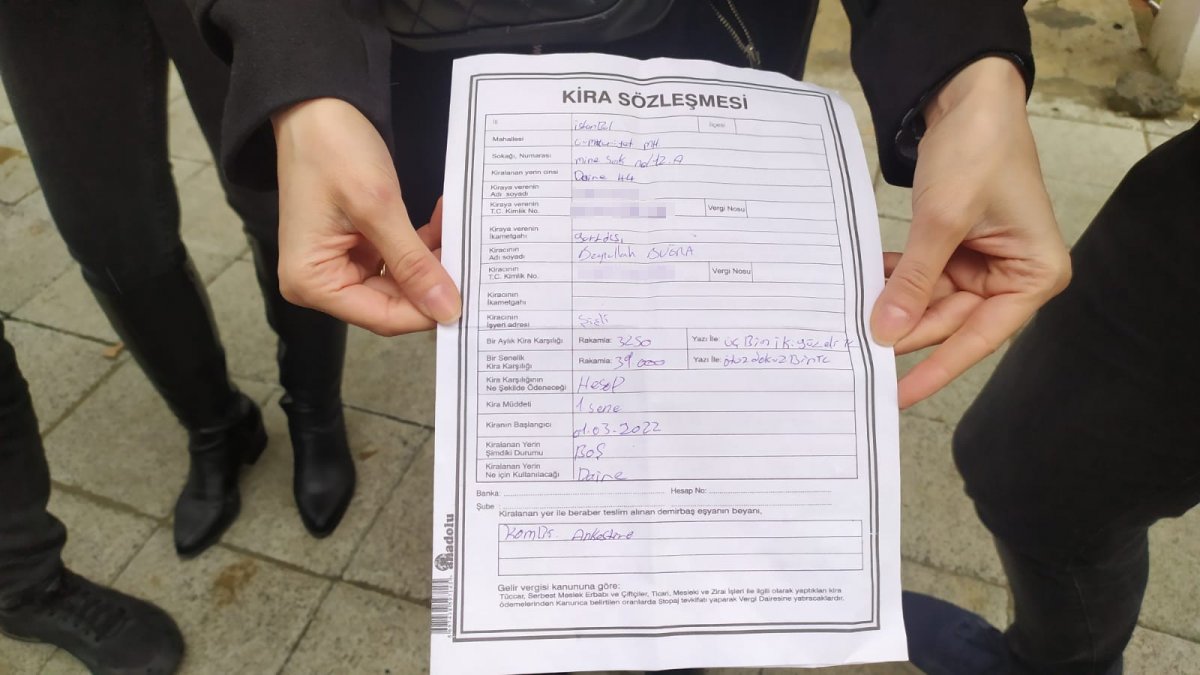 KİRA SÖZLEŞMESİ
İli istanbul İlçesi
Mahallesi Cumhuriyet MH
Sokağı, Numarası mine Sok no/12.A
Kiralanan yerin cinsi Daire H4
Kiraya verenin
Adı soyadı
Kiraya verenin
T.C. Kimlik No. Vergi Nosu
Kiraya verenin
İkametgahı
Kiracının
Adı soyadı Beytullah BUĞRA
Kiracının
T.C. Kimlik No. Vergi Nosu
Kiracının
İkametgahı
Kiracının
İşyeri adresi Şişli
Bir Aylık Kira Karşılığı Rakamla: 3250 Yazı İle: üç Bin iki yüz elli TL
Bir Senelik
Kira Karşılığı Rakamla: 39000 Yazı İle: otuz dokuz BinTL
Kira Karşılığının
Ne Şekilde Ödeneceği Hesap
Kira Müddeti 1 sene
Kiranın Başlangıcı 01.03.2022
Kiralanan Yerin
Şimdiki Durumu BOŞ
Kiralanan Yerin
Ne için Kullanılacağı Daire
Banka: Hesap No:
Şube :
Kiralanan yer ile beraber teslim alınan demirbaş eşyanın beyanı,
Kombi. Ankastre
Gelir vergisi kanununa göre:
Tüccar, Serbest Meslek Erbabı ve Çiftçiler, Ticari, Mesleki ve Zirai İşleri ile ilgili olarak yaptıkları kira
ödemelerinden Kanunca belirtilen oranlarda Stopaj tevkifatı yaparak Vergi Dairesine yatıracaklardır.
anadolu